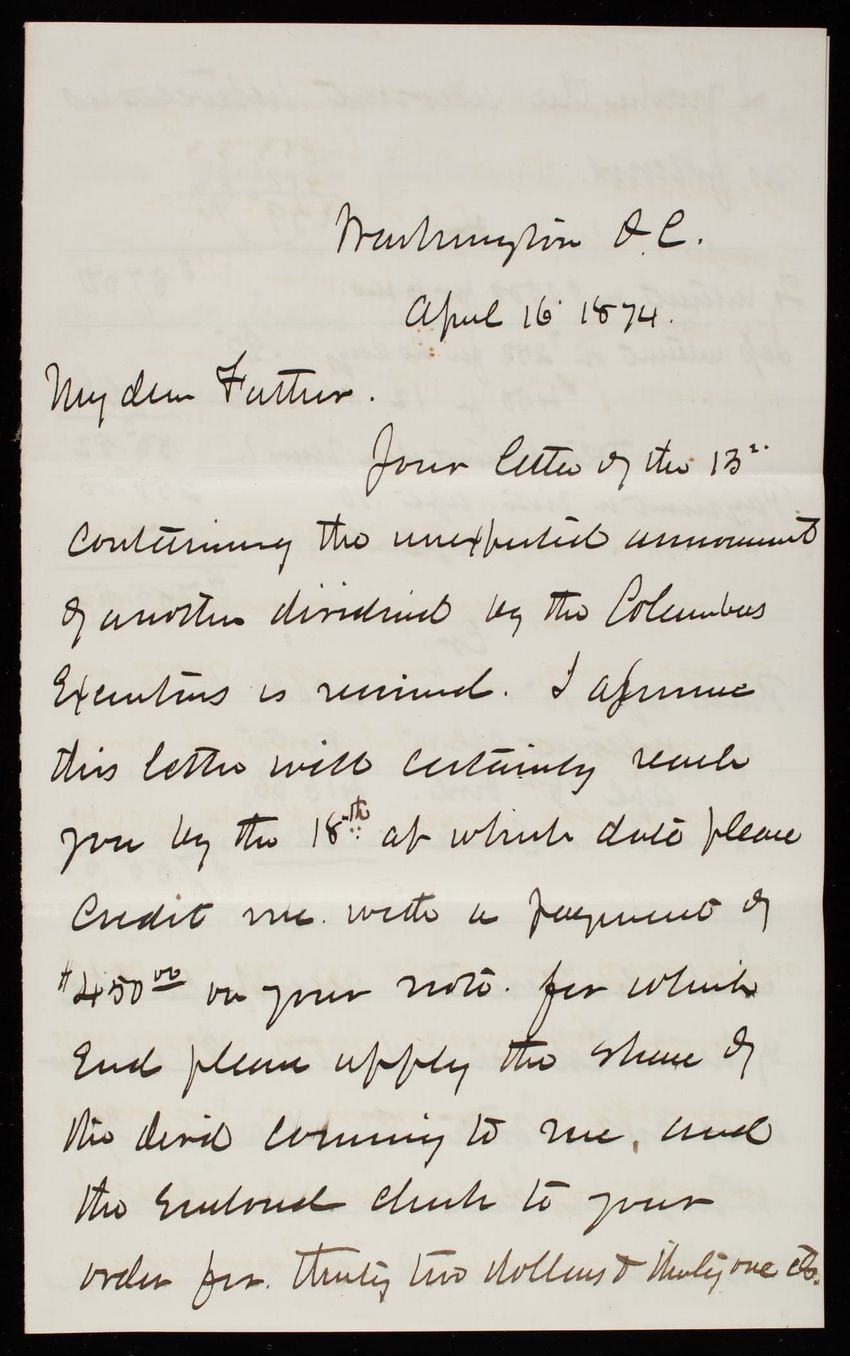 Washington D.C.
April 16 1874.
My dear Father.
Your letter of the 13th
containing the unexpected announcement
of another dividend by the Columbus
Executors is received. I assume
this letter will certainly reach
you by the 18th at which date please
Credit me with a payment of
$450 00 on your note. for which
End please apply the share of
the divid coming to me, and
the Enclosed check to your
order for. thirty two dollars & thirty one cts.